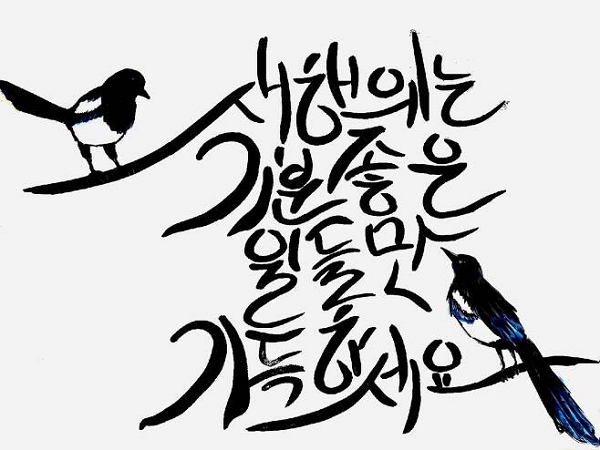 새해에는
기분좋은
일들만
가득하세요